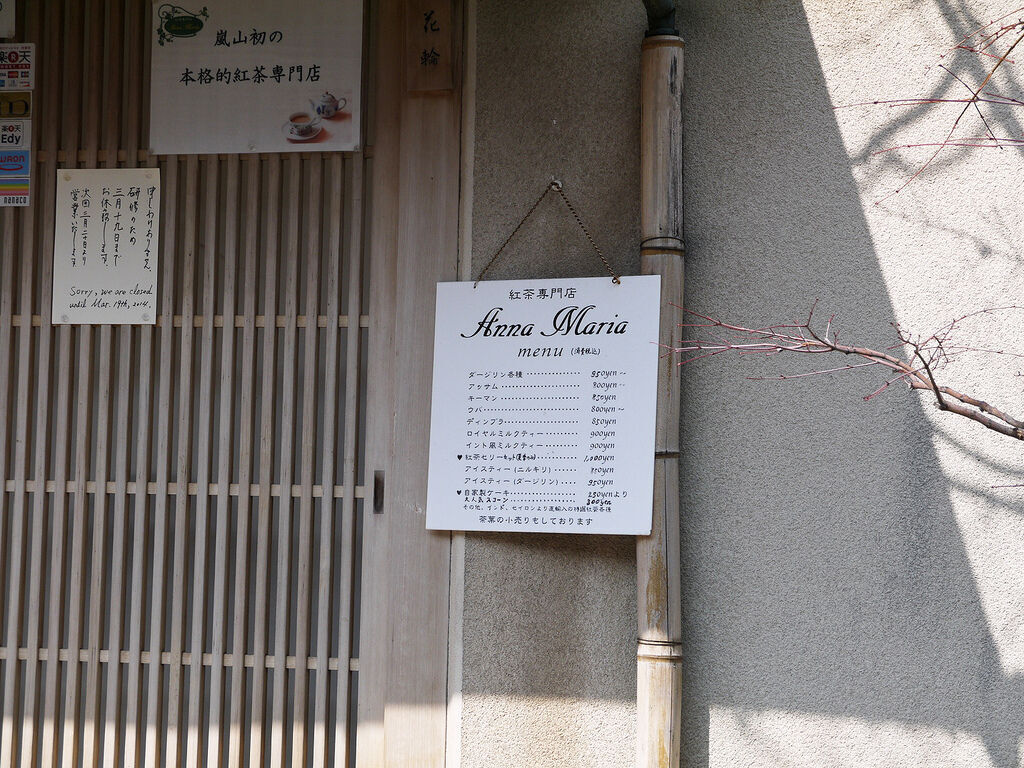 嵐山初の
本格的紅茶専門店
花輪
楽天
楽天
Edy
WAON
nanaco
申しわけありません。
研修のため
三月十九日まで
お休み致します。
次回三月二十日より
営業いたします
Sorry, we are closed
until Mar. 19th, 2014.
紅茶専門店
Anna Maria
menu (消費税込)
ダージリン各種 ················ 950yen〜
アッサム ························ 800yen〜
キーマン ························ 850yen
ウバ ···························· 800yen〜
ディンブラ ······················ 850yen
ロイヤルミルクティー ·········· 900yen
インド風ミルクティー ·········· 900yen
♥ 紅茶ゼリーセット ············ 1,000yen
アイスティー (ニルギリ) ······
アイスティー (ダージリン) ····· 950yen
♥ 自家製ケーキ ················ 250yenより
大人気 スコーン 300yen
その他、インド、セイロンより直輸入の特選紅茶各種
茶葉の小売りもしております